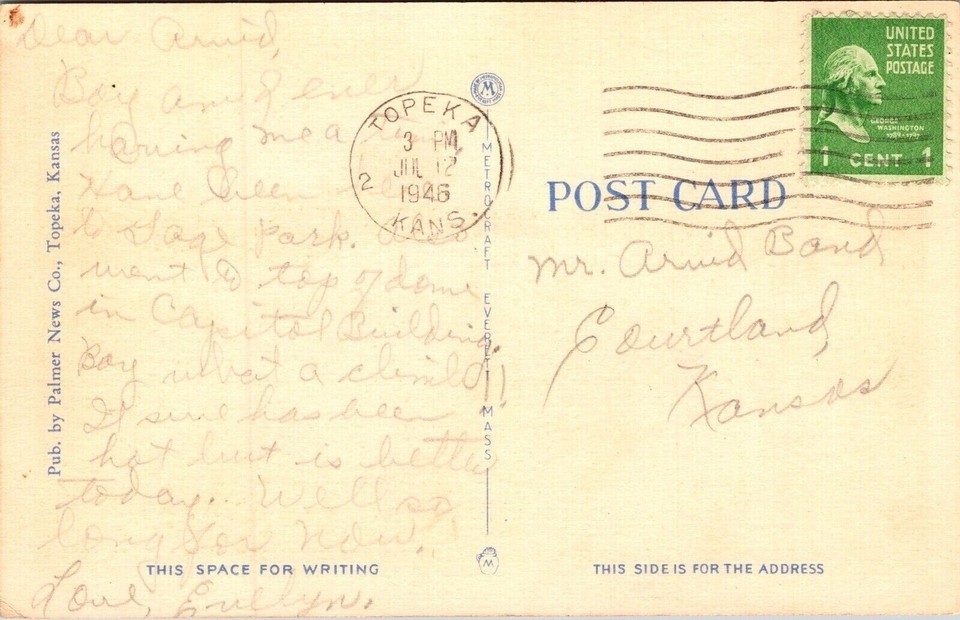 Dear Arvid,
Boy am I ever
having me a time
Have been
to Gage Park. Also
went to top of dome
in Capitol Building.
Boy what a climb!!
It sure has been
hot but is better
today. Well so
long for now.
Love, Evelyn.
THIS SPACE FOR WRITING
Pub. by Palmer News Co., Topeka, Kansas
METROCRAFT EVERETT MASS
TOPEKA
3 PM
JUL 12
1946
2
KANS.
UNITED
STATES
POSTAGE
GEORGE
WASHINGTON
1789-1797
1 CENT 1
POST CARD
Mr. Arvid Band
Courtland,
Kansas
THIS SIDE IS FOR THE ADDRESS